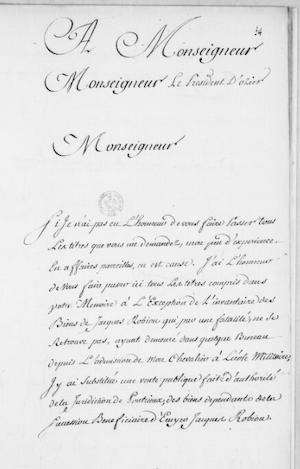 A Monseigneur
Monseigneur Le President D'ozier
Monseigneur
Si Je n'ai pas eu L'honneur de vous faire passer tous
Les titres que vous me demandez, mon peu d'experience
En affaires pareilles, en est cause. J'ai L'honneur
de vous faire passer ici tous Les titres compris dans
votre Memoire à L'Exception de L'inventaire des
Biens de Jacques Robiou qui par une fatalité, ne se
Retrouve pas, ayant demeuré dans quelque Bureau
depuis L'admission de mon Chevalier à L'école Militaire;
J'y ai Substitué une vente publique fait d'authorité
de la Juridiction de Pontrieux, des biens dependants de la
Succession Beneficiaire d'Ecuyer Jacques Robiou.